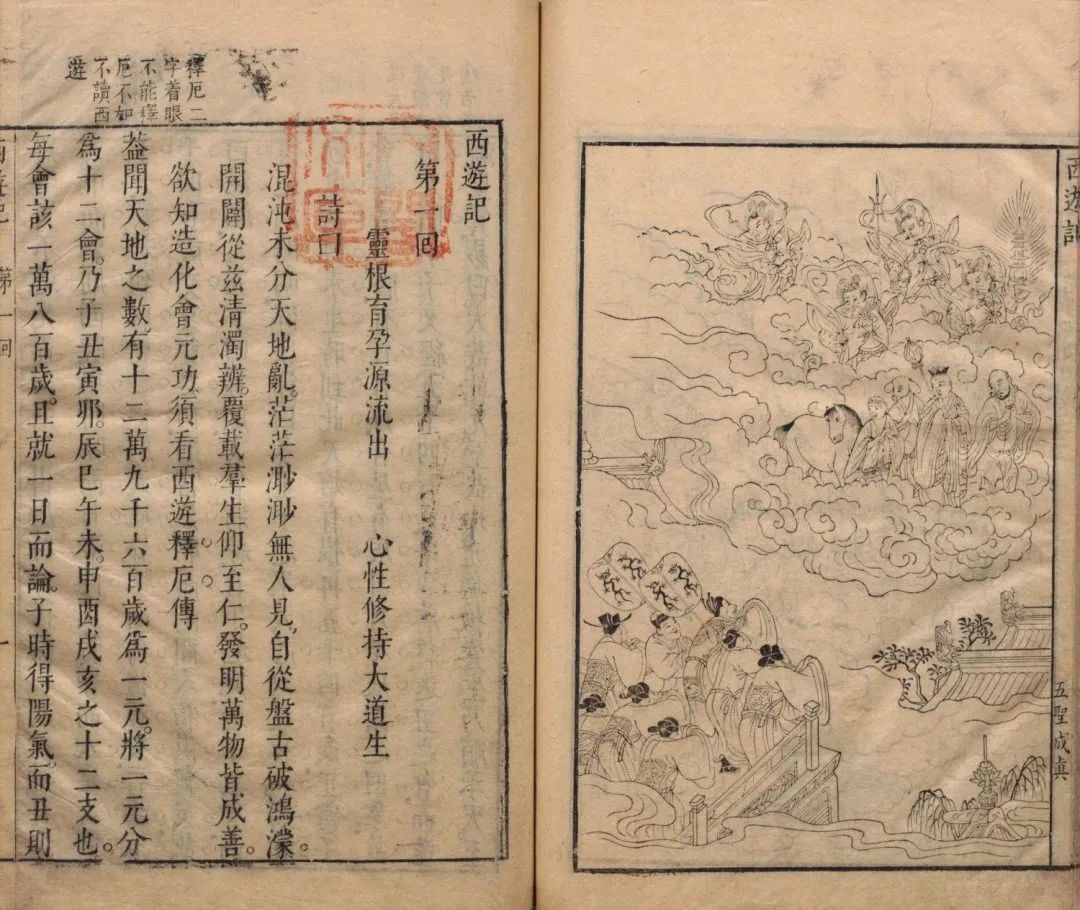 西遊記
五聖成眞
釋厄二
字着眼
不能釋
厄不如
不讀西
遊
西遊記
第一回
靈根育孕源流出 心性修持大道生
詩曰
混沌未分天地亂。茫茫渺渺無人見。自從盤古破鴻濛。
開闢從兹清濁辨。覆載羣生仰至仁。發明萬物皆成善。
欲知造化會元功須看西遊釋厄傳。
葢聞天地之數有十二萬九千六百歲爲一元。將一元分
爲十二會。乃子丑寅卯。辰巳午未。申酉戌亥之十二支也。
每會該一萬八百歲。且就一日而論。子時得陽氣。而丑則
西遊記 第一回 一